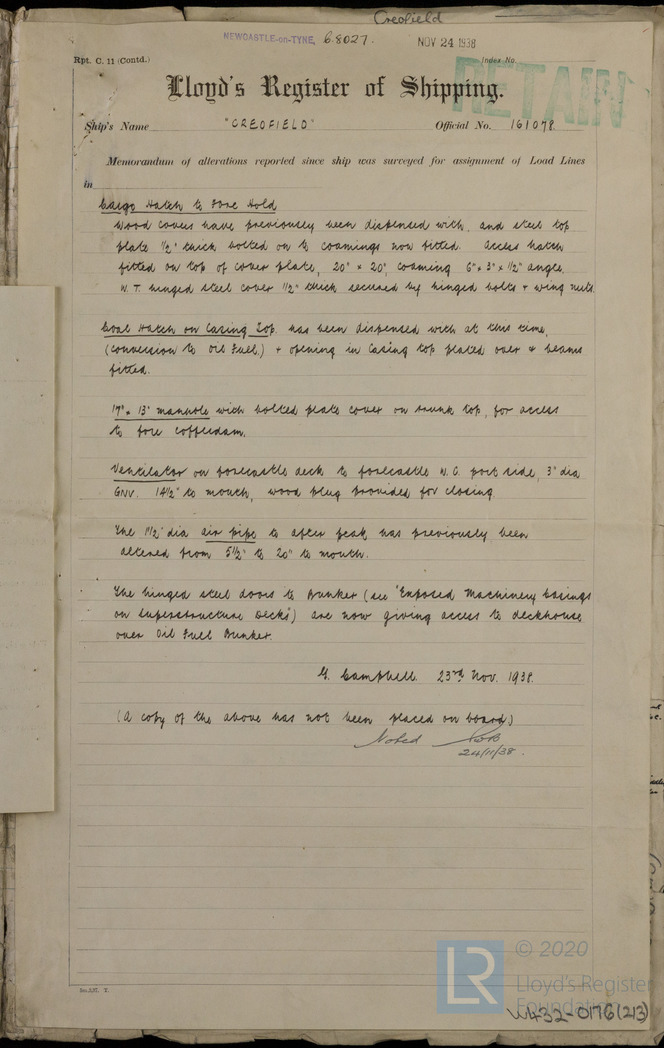 Creofield
NEWCASTLE-on-TYNE, 68027.
NOV 24 1938
Rpt. C. 11 (Contd.)
Index No.
RETAIN
Lloyd's Register of Shipping.
Ship's Name "CREOFIELD" Official No. 161078
Memorandum of alterations reported since ship was surveyed for assignment of Load Lines
in
Cargo Hatch to Fore Hold
Wood covers have previously been dispensed with, and steel top
plate 1/2" thick bolted on to coamings now fitted. Access hatch
fitted on top of cover plate, 20" × 20", coaming 6" × 3" × 1/2" angle.
W.T. hinged steel cover 1/2" thick secured by hinged bolts + wing nuts.
Coal Hatch on Casing Top. has been dispensed with at this time,
(conversion to Oil Fuel.) + opening in Casing top plated over + beams
fitted.
17" × 13" manhole with bolted plate cover on trunk top, for access
to fore cofferdam.
Ventilator on forecastle deck to forecastle W.C. port side, 3" dia
GNV. 14 1/2" to mouth, wood plug provided for closing
The 1 1/2" dia air pipe to after peak has previously been
altered from 5 1/2" to 20" to mouth.
The hinged steel doors to Bunker (see "Exposed Machinery Casings
on Superstructure Decks") are now giving access to deckhouse
over Oil Fuel Bunker.
G. Campbell. 23rd Nov. 1938.
(A copy of the above has not been placed on board.)
Noted
24/11/38.
© 2020
LR
Lloyd's Register
Foundation
W432-0176(213)